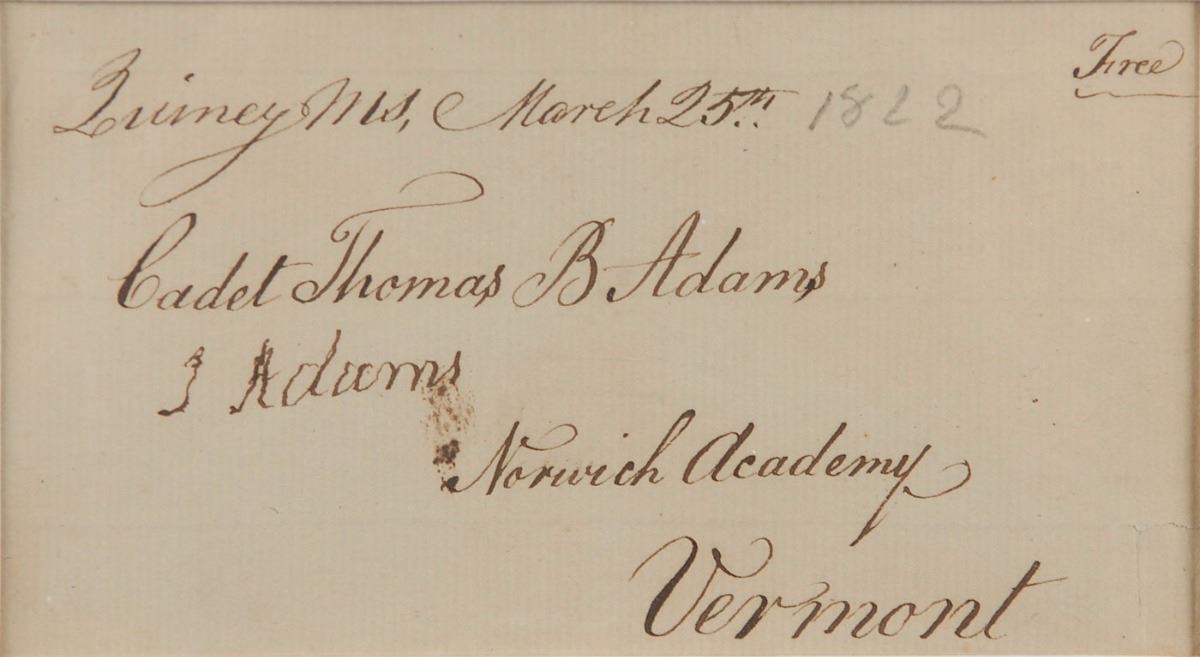 Free
Quincy Ms, March 25th 1822
Cadet Thomas B Adams
J Adams
Norwich Academy
Vermont